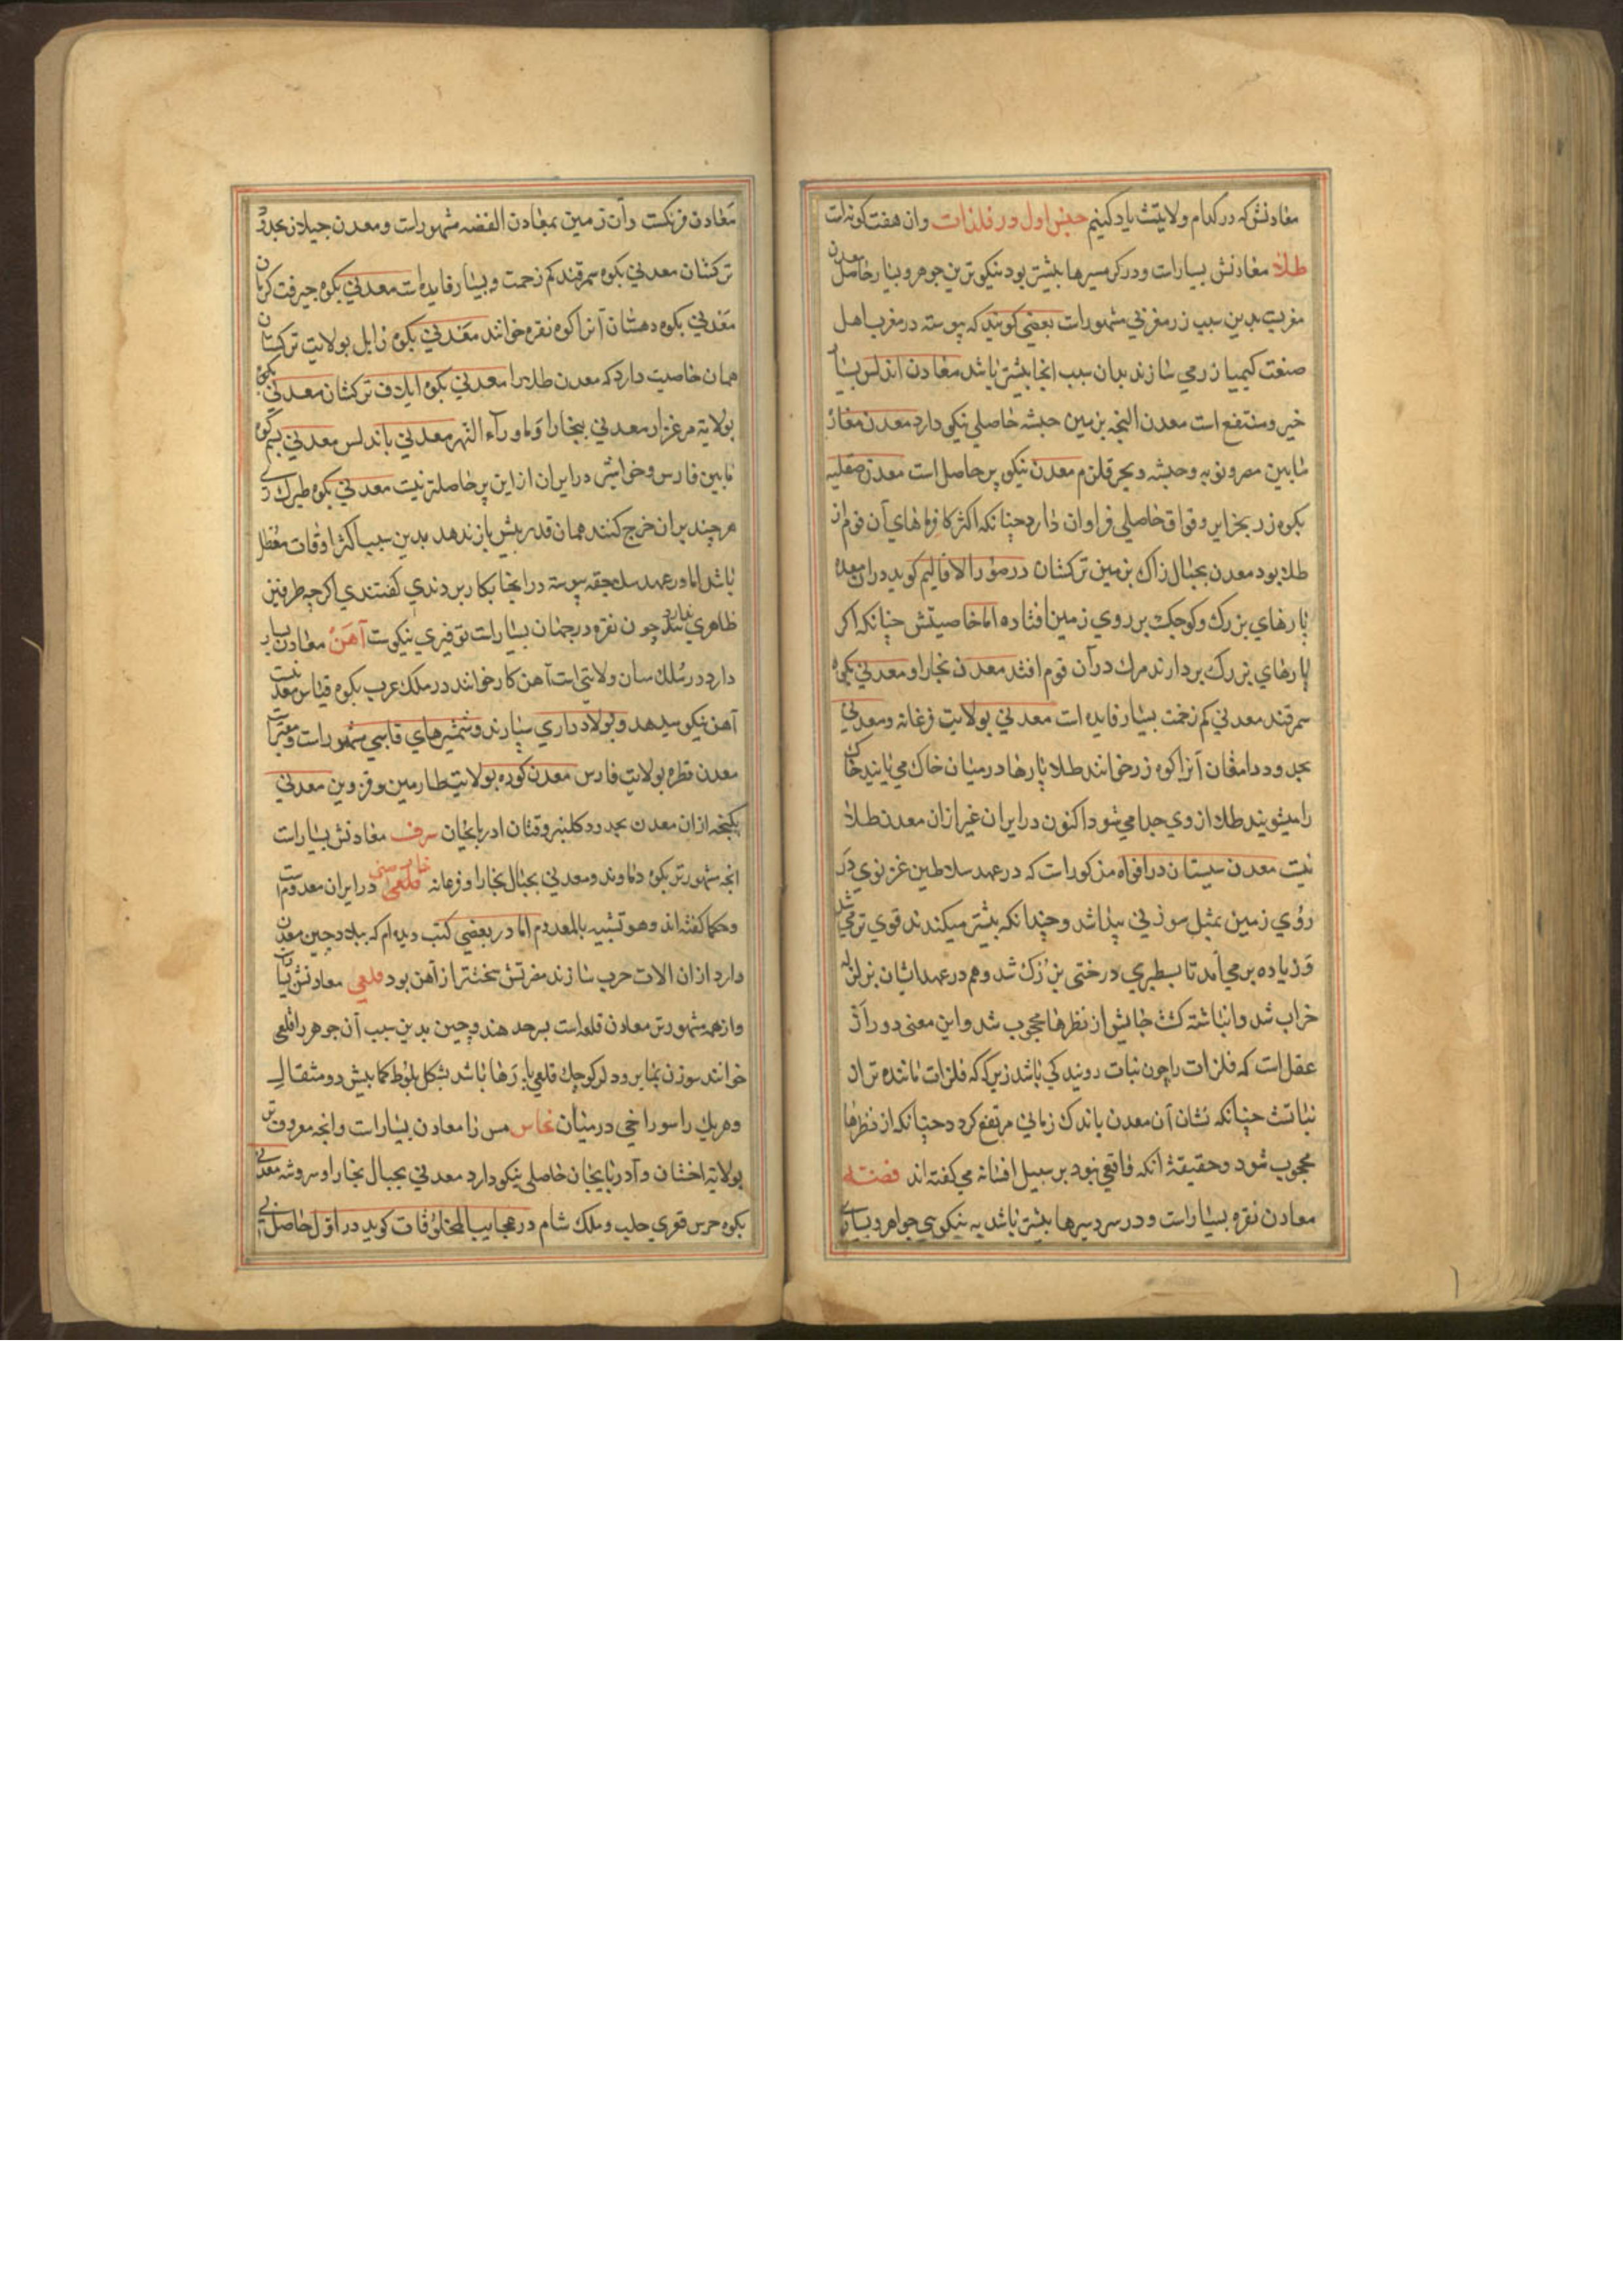 معادنش که در کدام ولایتست یاد کنیم جنس اول در فلزات وان هفت کونه است
طلا معادنش بسیار است ودر کرمسیرها بیشتر بود نیکو ترین جوهر وبسیار حاصل معدن
مغربست بدین سبب زر مغربی مشهور است بعضی کویند که پیوسته در مغرب اهل
صنعت کیمیا زر می سازند بدان سبب انجا بیشتر باشد معادن اندلس بسیار
خیر ومنتفع است معدن البجه بزمین حبشه حاصلی نیکی دارد معدن مغاز
مابین مصر ونوبه وحبشه وبحر قلزم معدن نیکو پر حاصل است معدن صقلیه
بکوه زر بجزایر وقواق حاصلی فراوان دارد چنانکه اکثر کافرماهای آن قوم از
طلا بود معدن بجبال زاک بزمین ترکستان در صور الاقالیم کوید در ان معدن
پارهای بزرک وکوچک بر روی زمین افتاده اما خاصیتش چنانکه اکر
پارهای بزرک بردارند مرک در آن قوم افتد معدن بخارا ومعدنی بکوه
سمرقند معدنی کم زحمت بسیار فایده است معدنی بولایت فرغانه ومعدنی
بحدود دامغان آنرا کوه زر خوانند طلا پارها در میان خاک می یابند خاک
را میشویند طلا از وی جدا می شود اکنون در ایران غیر از ان معدن طلا
نیست معدن سیستان در افواه مذکور است که در عهد سلاطین غزنوی در
روی زمین بمثل سوزنی پیدا شد وچندانکه بیشتر میکندند قوی تر می شد
وزیاده بر می آمد تا بسطبری درختی بزرک شد وهم در عهد ایشان بزلزله
خراب شد وانباشته کشت جایش از نظرها محجوب شد واین معنی دور از
عقل است که فلزات را چون نبات رویندکی باشد زیرکه که فلزات ماننده تر از
نباتست چنانکه نشان آن معدن باندک زمانی مرتفع کردد چنانکه از نظرها
محجوب شود وحقیقة آنکه واقعی نبود بر سبیل افسانه می کفته اند فضته
معادن نقره بسیار است ودر سردسرها بیشتر باشد به نیکویی جواهر وبسیاری
معادن فرنکست وآن زمین بمعادن الفضه مشهور است ومعدن جیلان بحدود
ترکستان معدنی بکوه سمرقند کم زحمت وبسیار فایده است معدنی بکوه جیرفت کرمان
معدنی بکوه دهستان آنرا کوه نقره خوانند معدنی بکوه زابل بولایت ترکستان
همان خاصیت دارد که معدن طلا را معدنی بکوه ایلاق ترکستان معدنی بکوه
بولایة مرغزار معدنی ببخارا وماوراء النهر معدنی باندلس معدنی بکوه
مابین فارس وخراسان در ایران از این پر حاصلتر نیست معدنی بکوه طبرک ری
هر چند بران خرج کنند همان قدر بیش باز ندهد بدین سبب اکثر اوقات معطل
باشد اما در عهد سلاجقه پیوسته در انجا بکار بردندی کفتندی اکرچه طرفین
ظاهری ندارد چون نقره در جهان بسیار است توفیری نیکوست آهن معادن بسیار
دارد در ملک سان ولایتی است آهن کار خوانند در ملک عرب بکوه قساس معدنیست
آهن نیکو میدهد وپولاد داری سپارند وشمشیرهای قاسی مشهور است ومعتبر است
معدن قطره بولایت فارس معدن کوره بولایت طارمین وقزوین معدنی
بکنجه ازان معدن بحدود کلنبر وقبان ادربایجان سرف معادنش بسیار است
انجه مشهورتر بکوه دماوند ومعدنی بجبال بخارا وفرغانه قلعی خارصینی در ایران معدوم است
وحکما کفته اند وهو تشبیه بالمعدوم اما در بعضی کتب دیده ام که ببلاد چین معدن
دارد ازان الات حرب سازند مضرتش سختتر از آهن بود قلعی معادنش بسیار است
واز همه مشهورتر معادن قلعه است بسرحد هند وچین بدین سبب آن جوهر را قلعی
خوانند سوزن بنابر ود لرکوچک قلعی پارها باشد بشکل بلوط کمابیش دو مثقال
وهریک را سوراخی در میان نحاس مس را معادن بسیار است وانجه معروف تر
بولایة اخشان وآدربایجان حاصلی نیکو دارد معدنی بجبال بخارا وسروشنه معدنی
بکوه جرس قوری حلب وملک شام در عجایب المخلوقات کوید در اول حاصل